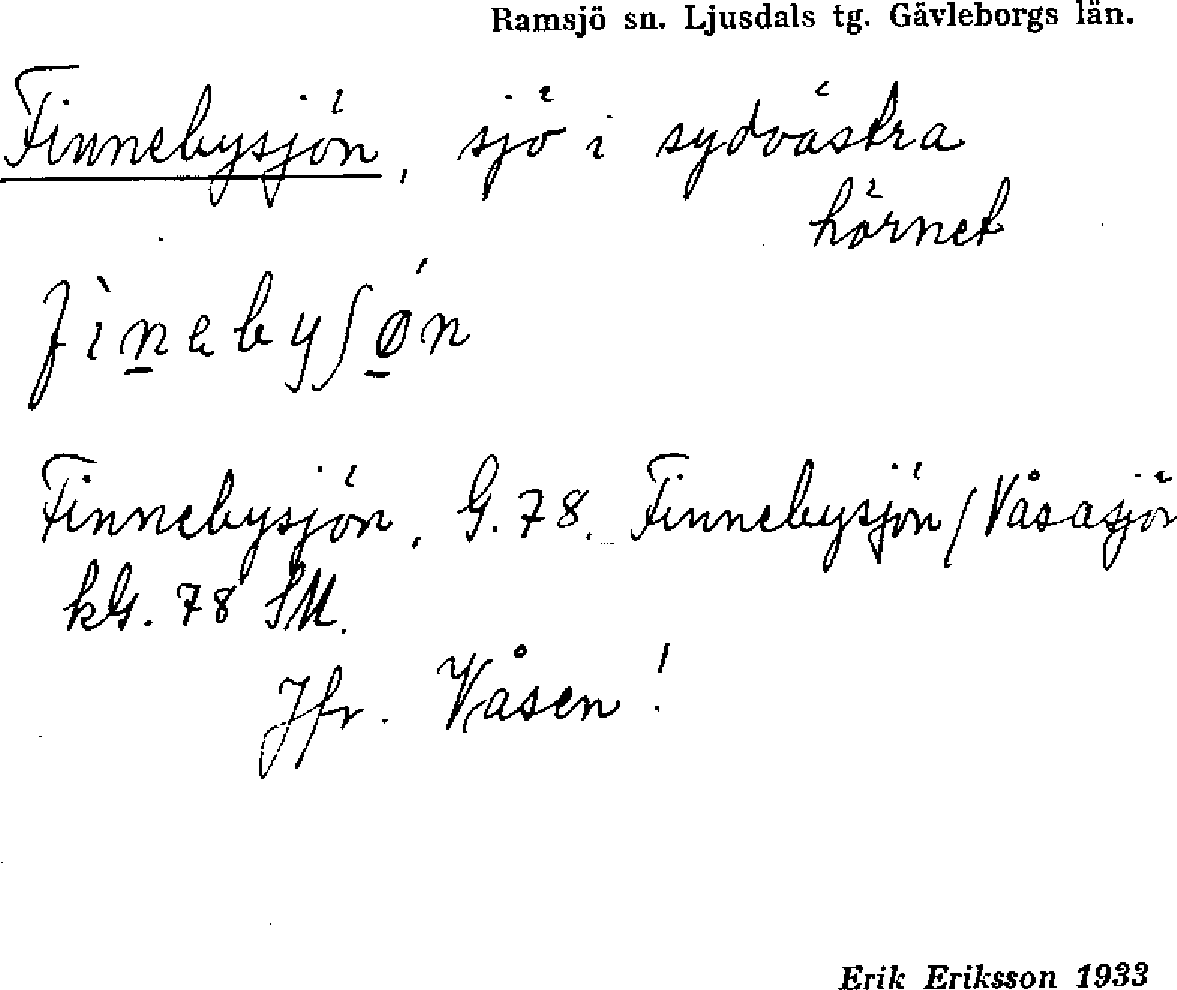 Ramsjö sn. Ljusdals tg. Gävleborgs län.
Finnebysjön, sjö i sydvästra
hörnet
fìnebyʃǿn
Finnebysjön, G. 78. Finnebysjön/Våsasjön
kG. 78 SM.
Jfr. Våsen!
Erik Eriksson 1933